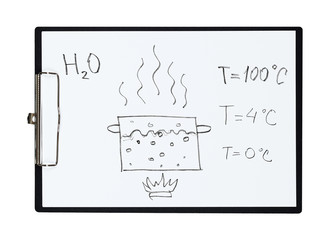 H₂O
T=100°C
T=4°C
T=0°C